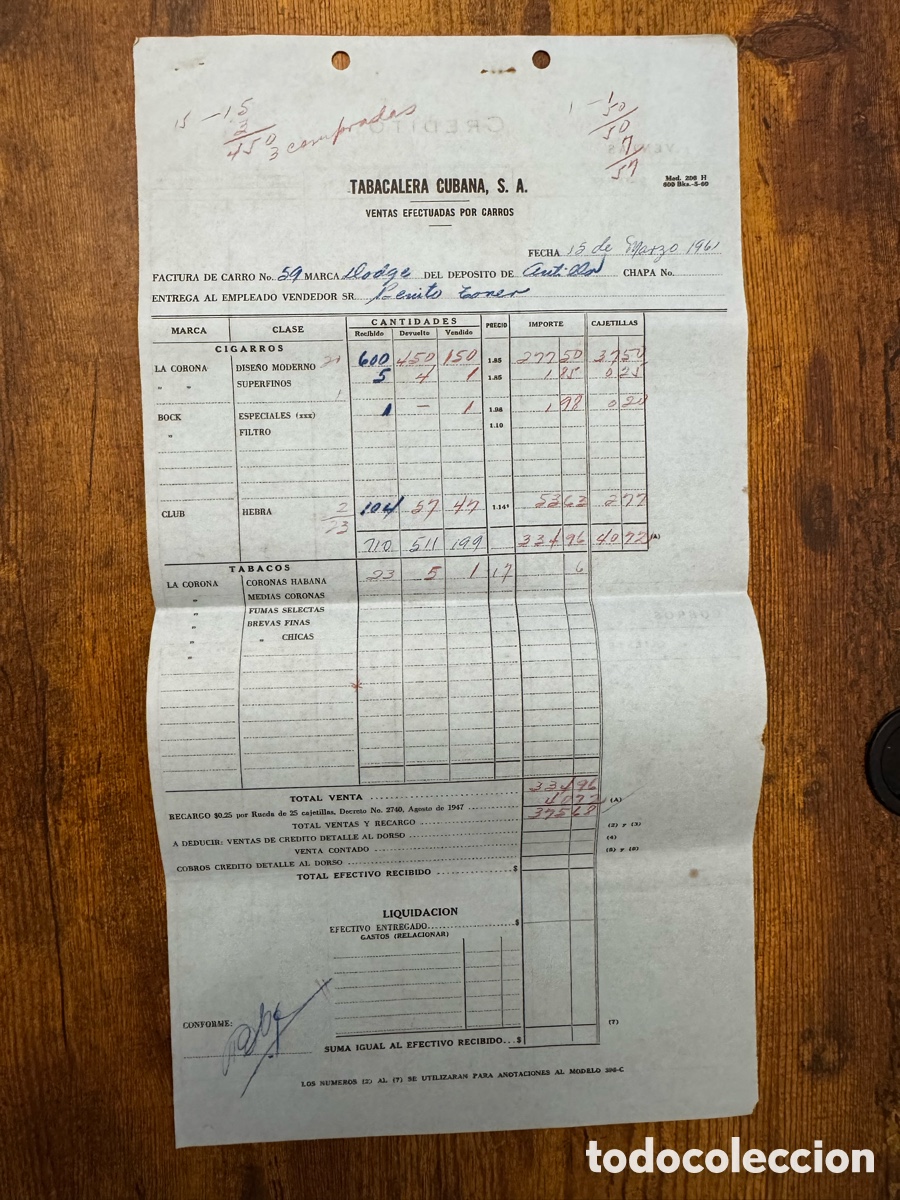 15 - 15
3
450 3 compradas
1 - 1
50
50
7
57
TABACALERA CUBANA, S. A.
Mod. 206 H
600 Bks.-5-60
VENTAS EFECTUADAS POR CARROS
FECHA 15 de Marzo 1961
FACTURA DE CARRO No. 59 MARCA Dodge DEL DEPOSITO DE Antilla CHAPA No.
ENTREGA AL EMPLEADO VENDEDOR SR. Benito
MARCA CLASE CANTIDADES PRECIO IMPORTE CAJETILLAS
Recibido Devuelto Vendido
CIGARROS
LA CORONA DISEÑO MODERNO 600 450 150 1.85 277 50 37 50
" " SUPERFINOS 5 4 1 1.85 1 85 0 25
BOCK ESPECIALES (xxx) 1 - 1 1.98 1 98 0 20
" FILTRO 1.10
CLUB HEBRA 2 104 57 47 1.14⁵ 53 63 2 77
23
710 511 199 334 96 40 72 (A)
TABACOS
LA CORONA CORONAS HABANA 23 5 1 17 6
" MEDIAS CORONAS
" FUMAS SELECTAS
" BREVAS FINAS
" " CHICAS
"
TOTAL VENTA 334 96
RECARGO $0.25 por Rueda de 25 cajetillas, Decreto No. 2740, Agosto de 1947 (A)
TOTAL VENTAS Y RECARGO 375 68
A DEDUCIR: VENTAS DE CREDITO DETALLE AL DORSO (2) y (3)
VENTA CONTADO (4)
COBROS CREDITO DETALLE AL DORSO (5) y (6)
TOTAL EFECTIVO RECIBIDO $
LIQUIDACION
EFECTIVO ENTREGADO $
GASTOS (RELACIONAR)
CONFORME:
(7)
SUMA IGUAL AL EFECTIVO RECIBIDO... $
LOS NUMEROS (2) AL (7) SE UTILIZARAN PARA ANOTACIONES AL MODELO 398-C
todocoleccion